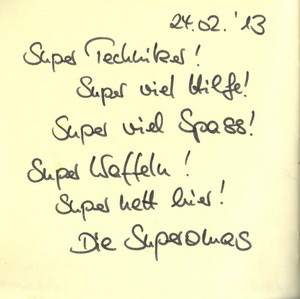 24.02.'13
Super Techniker!
Super viel Hilfe!
Super viel Spass!
Super Waffeln!
Super nett hier!
Die Superomas